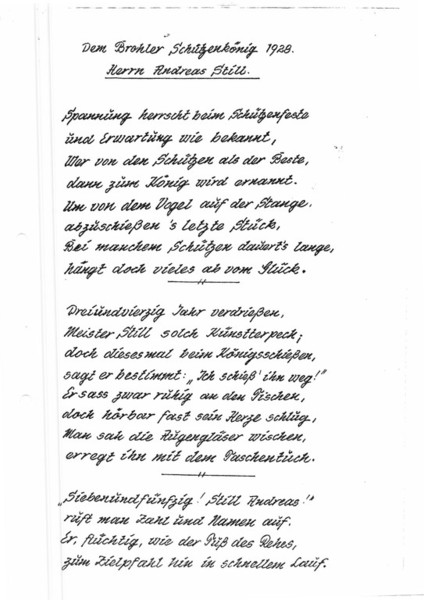 Dem Brohler Schützenkönig 1928.
Herrn Andreas Still.
Spannung herrscht beim Schützenfeste
und Erwartung wie bekannt,
Wer von den Schützen als der Beste,
dann zum König wird ernannt.
Um von dem Vogel auf der Stange.
abzuschießen 's letzte Stück,
Bei manchem Schützen dauert's lange,
hängt doch vieles ab vom Glück.
Dreiundvierzig Jahr verdrießen,
Meister Still solch Künstlerpech;
doch diesesmal beim Königsschießen,
sagt er bestimmt: „Ich schieß' ihn weg!"
Er sass zwar ruhig an den Tischen,
doch hörbar fast sein Herze schlug,
Man sah die Augengläser wischen,
erregt ihn mit dem Taschentuch.
„Siebenundfünfzig! Still Andreas!"
ruft man Zahl und Namen auf.
Er, flüchtig, wie der Fuß des Rehes,
zum Zielpfahl hin in schnellem Lauf.